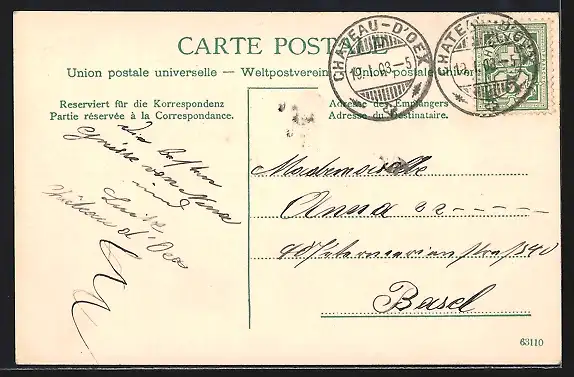 CARTE POSTALE
Union postale universelle — Weltpostverein — Unione postale universale
Reserviert für die Korrespondenz
Partie réservée à la Correspondance.
Adresse des Empfängers
Adresse du Destinataire.
CHATEAU-D'OEX
19.I.03-5
CHATEAU-D'OEX
19.I.03-5
5
Die besten
Grüsse von Nana
und
Château d'Oex
Mademoiselle
Anna
Basel
63110